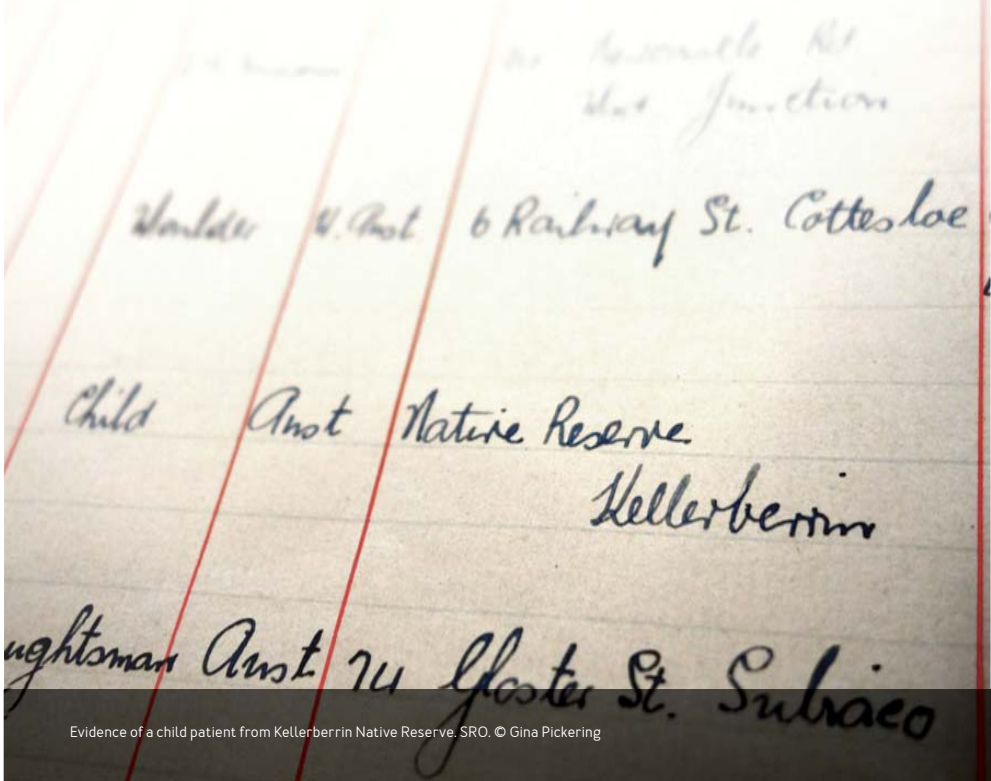 Junction
Moulder W. Aust 6 Railway St. Cottesloe
Child Aust Native Reserve
Kellerberrin
ughtsman Aust 74 Gloster St. Subiaco
Evidence of a child patient from Kellerberrin Native Reserve. SRO. © Gina Pickering